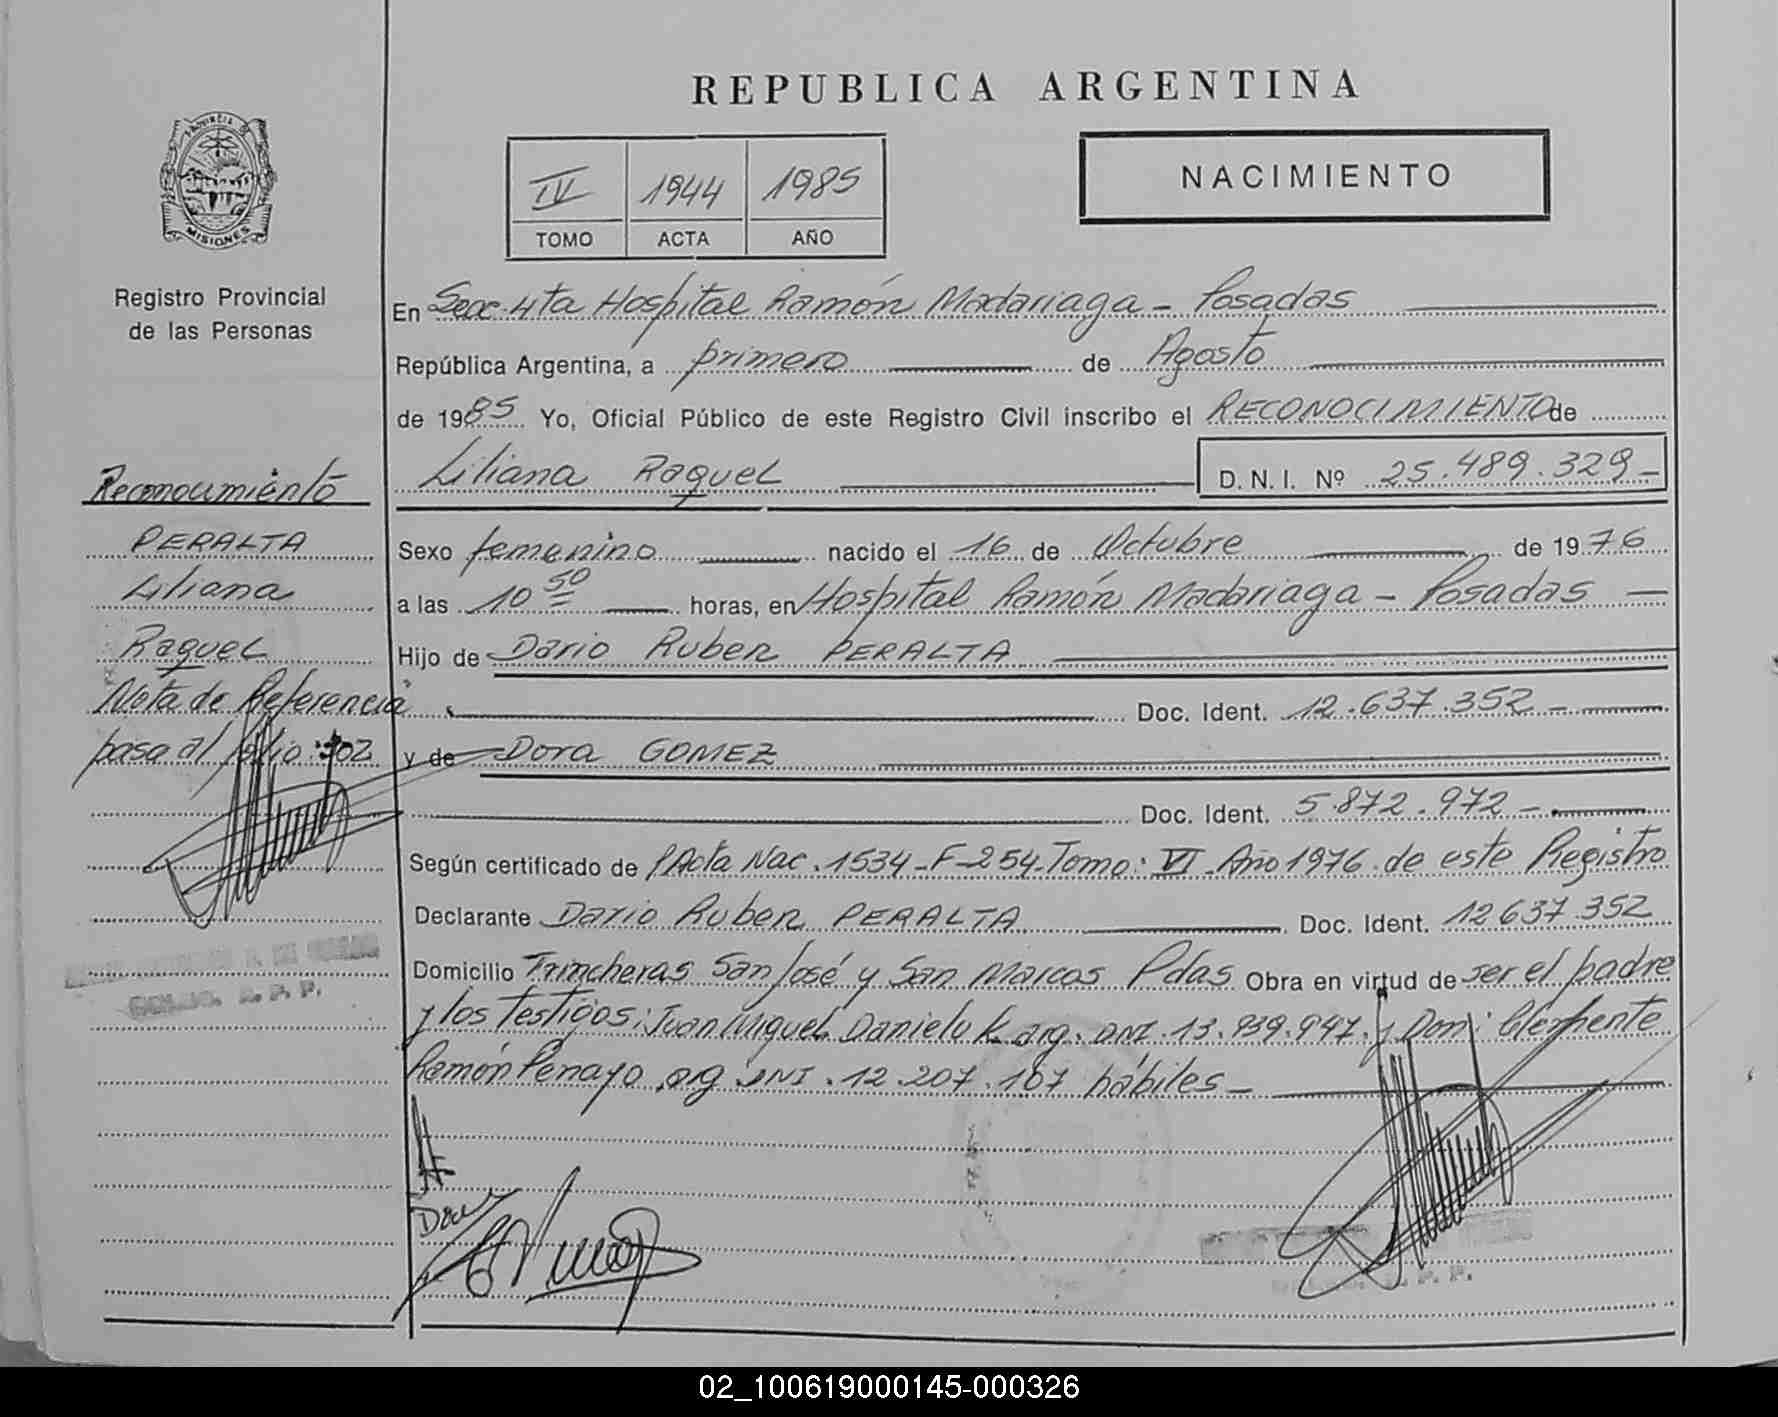 REPUBLICA ARGENTINA
PROVINCIA DE
MISIONES
IV 1944 1985
TOMO ACTA AÑO
NACIMIENTO
Registro Provincial
de las Personas
En Secc. 4ta Hospital Ramón Madariaga - Posadas
República Argentina, a primero de Agosto
de 1985 Yo, Oficial Público de este Registro Civil inscribo el RECONOCIMIENTO de
Liliana Raquel D. N. I. Nº 25.489.329-
Reconocimiento
PERALTA
Liliana
Raquel
Nota de Referencia
pasa al folio 302
Sexo femenino nacido el 16 de Octubre de 1976
a las 10 50 horas, en Hospital Ramón Madariaga - Posadas
Hijo de Dario Ruben PERALTA
Doc. Ident. 12.637.352-
y de Dora GOMEZ
Doc. Ident. 5.872.972-
Según certificado de Acta Nac. 1534-F-254-Tomo: VI Año 1976 de este Registro
Declarante Dario Ruben PERALTA Doc. Ident. 12637.352
Domicilio Trincheras San José y San Marcos Pdas Obra en virtud de ser el padre
y los Testigos: Juan Miguel Danieluk arg. DNI. 13.939.947. y Don: Clemente
Ramón Penayo arg DNI. 12.207.167 hábiles-
02_100619000145-000326